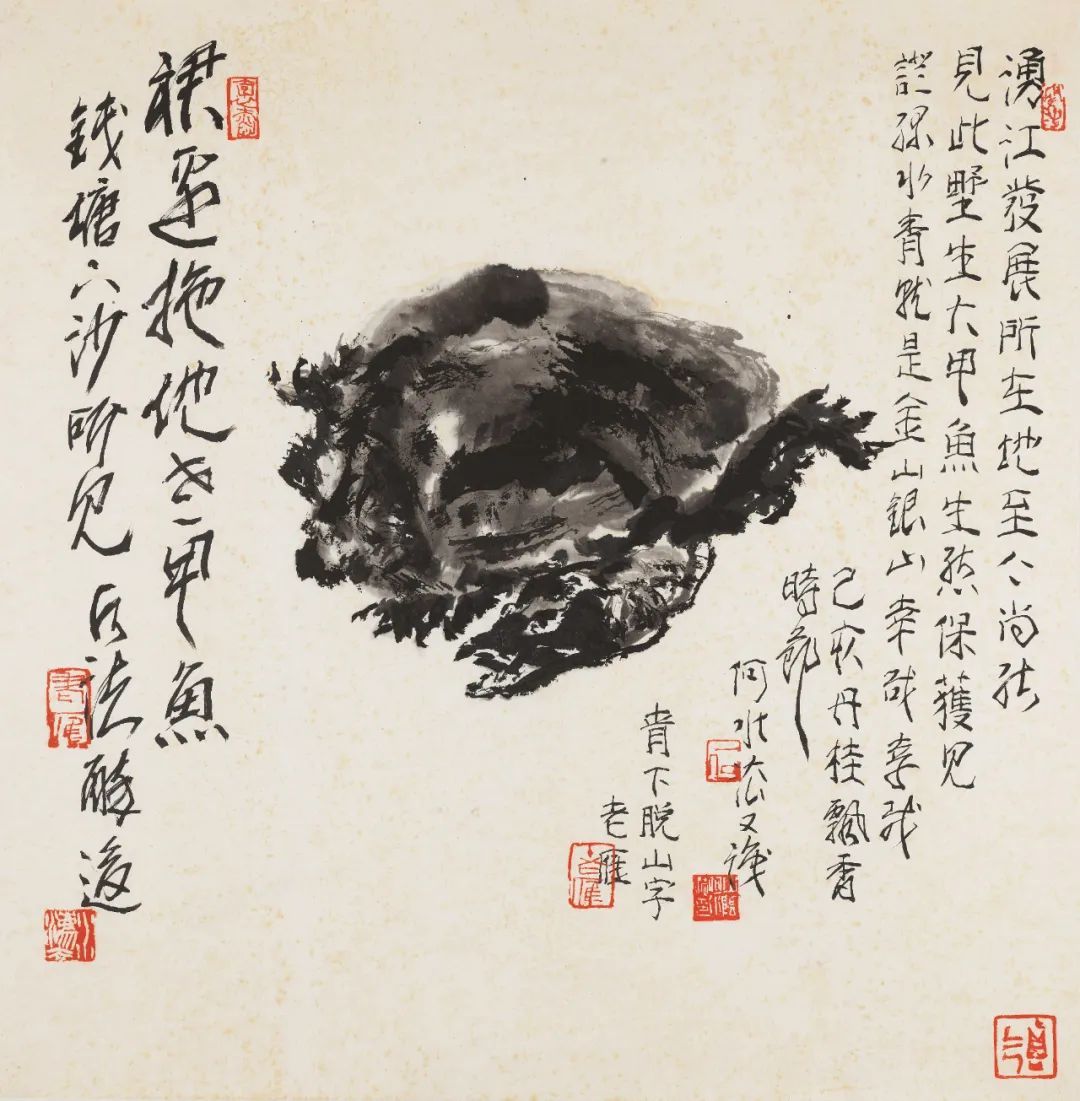 湧江發展所在地至今尚能
見此野生大甲魚生态保獲见
證緑水青就是金山銀山幸哉幸哉
己亥丹桂飄香
時節
何水法又識
青下脱山字
老
裙邊拖地老甲魚
錢塘下沙所见 水法醉後